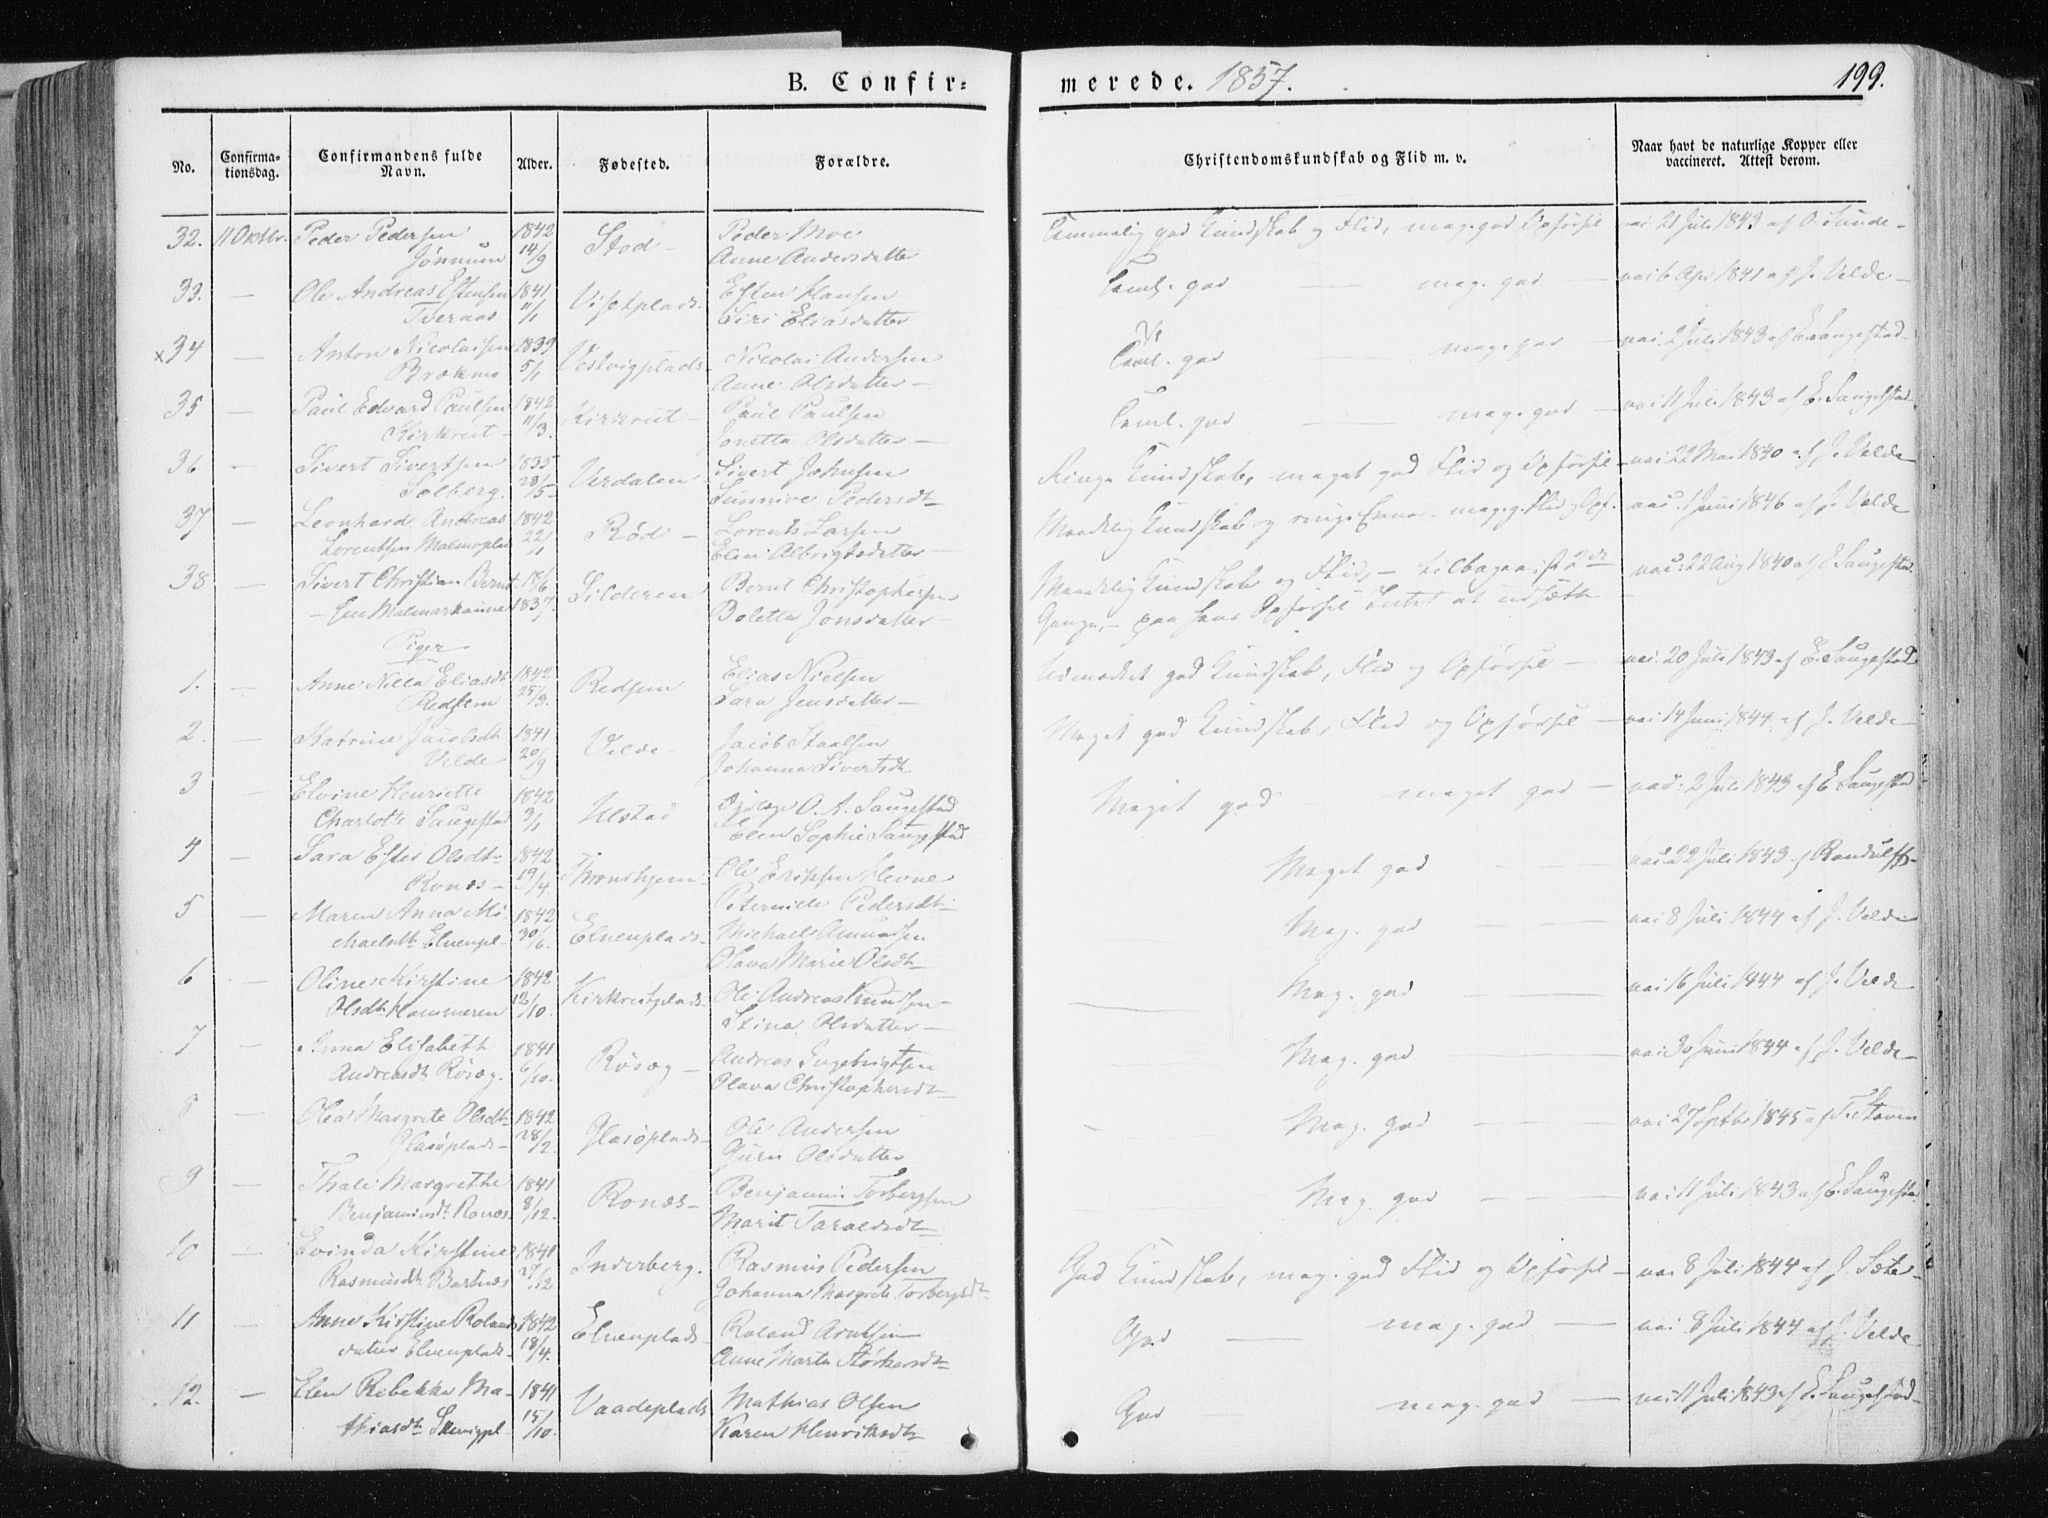 B. Confir= merede. 1857. 199.
No. Confirma-tionsdag. Confirmandens fulde Navn. Alder. Fødested. Forældre. Christendomskundskab og Flid m. v. Naar havt de naturlige Kopper eller vaccineret. Attest derom.
32. 11 Oktbr. Peder Pedersen 1842 Stod - Peder Moe Temmelig god Kundskab og Flid, meg. god Opførsel vac. 21 Juli 1843 af O. Sunde -
14/9 Anne Andersdatter
33. — Ole Andreas Estensen 1841 Esten Hansen Teml. god — meg. god — vac. 6 Apr 1841 af J. Velde -
11/1 Siri Eliasdatter
x34 — Anton Nicolaisen 1839 Vestvigplads - Nicolai Andersen Teml. god — meg. god — vac. 2 Juli 1843 af E. Saugestad -
5/1 Anne Olsdatter -
35 — Paul Edvard Paulsen 1842 Kirkreit - Paul Paulsen Teml. god — meg. god — vac. 11 Juli 1843 af E. Saugestad
Kirkreit - 11/3. Jonetta Olsdatter -
36 — Sivert Sivertsen 1835 Verdalen - Sivert Johnsen Ringe Kundskab, meget god Flid og Opførsel - vac. 22 Mai 1840 af J. Velde
Solberg. 28/5 - Sunnive Pedersdt-
37 — Leonhard Andreas 1842 Rød - Lorents Larsen Maadelig Kundskab og ringe Evne - meg. g. Flid og Opf. vac. 1 Juni 1846 af J. Velde
Lorentsen Malmoplad 22/1 Elen Albrigtsdatter -
38 — Sivert Christian Bernt- 15/6 Silderen Bernt Christophersen Maadelig Kundskab og Flid, - tilbagevist 2de vac: 22 Aug 1840 af E Saugestad
- sen 1837 Boletta Jonsdatter - Gange, - paa hans Opførsel Intet at udsætte -
Piger
1. — Anne Nilla Eliasdt 1842 Redsem Elias Nielsen Udmærket god Kundskab, Flid og Opførsel - vac. 20 Juli 1843 af E. Saugestad
Redsem 25/3. Sara Jensdatter -
2. — Katrine Jacobsdt 1841 Velde - Jacob Staalsen Meget god Kundskab, Flid og Opførsel - vac. 14 Juni 1844 af J. Velde -
Velde - 20/9 Johanna Sivertsdt
3 Elvine Henriette 1842 Ulstad O. A. Saugestad Meget god meget god - vac: 2 Juli 1843 af E Saugestad
Charlotte Saugestad 3/1 Elen Sophie Saugestad
4 — Sara Ester Olsdt- 1842 Throndhjem - Ole Eriksen Hevne Meget god — — vac. 22 Juli 1843 af Randulff-
Ronæs - 19/4. Peternele Pedersdt-
5 — Maren Anna Mi- 1842 Elvenplads - Michael Amundsen Meg. god — — vac. 8 Juli 1844 af J. Velde
chaelsdt Elvenpl - 30/6. Olava Marie Olsdt-
6 — Oline Kirstine 1842 Kirkreitplads - Ole Andreas Knudsen - Meg. god — vac. 16 Juli 1844 af J. Velde
Olsdt Hammeren 12/10. Stina Olsdatter -
7 — Anna Elisabeth 1841 Røsæg - Andreas Ingebrigtsen Meg. god — — vac. 30 Juni 1844 af J. Velde -
Andreasdt Røsæg. 6/10. Olava Christophersdt-
8 — Olea Margrete Olsdt- 1842 Glasøplads - Ole Andersen Meg. god — — vac. 27 Septbr 1845 af T. Staven
Glasøplads - 28/2. Guru Olsdatter
9 — Thale Margrethe 1841 Ronæs - Benjamin Torbergsen Meg. god — — vac. 11 Juli 1843 af E. Saugestad
Benjaminsdt Ronæs - 8/12. Marit Taraldsdt-
10 — Evinda Kirstine 1841 Inderberg. Rasmus Pedersen God Kundskab, meg. god Flid og Opførsel - vac. 8 Juli 1844 af J. Sæter -
Rasmusdt Bartnæs 27/12 Johanna Margrete Torbergsdt-
11 — Anne Kirstine Rolands 1842 Elvenplads - Roland Arntsen God — meg. god — vac. 8 Juli 1844 af J. Velde -
datter Elvenplads - 18/4. Anne Marta Storkersdt-
12. — Elen Rebekka Ma- 1841 Vaadeplads Mathias Olsen God — meg. god — vac. 11 Juli 1843 af E. Saugestad -
thiasdt 15/10. Karen Henriksdt-